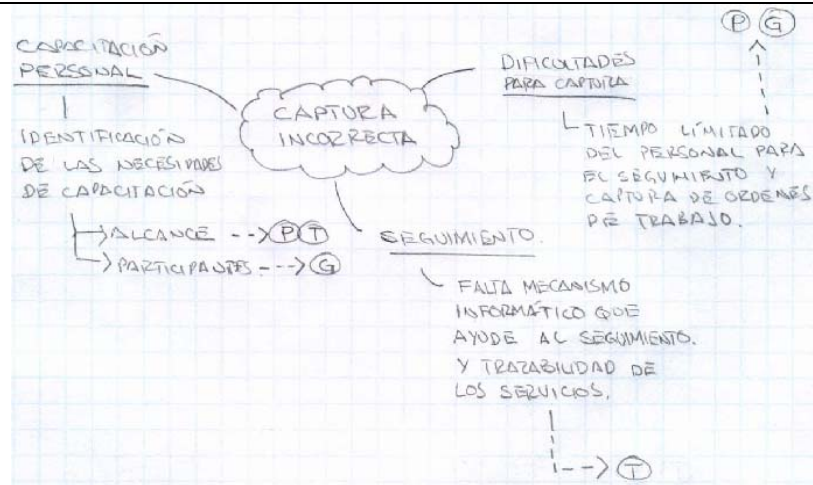 CAPACITACIÓN
PERSONAL
IDENTIFICACIÓN
DE LAS NECESIDADES
DE CAPACITACIÓN
ALCANCE --> P T
PARTICIPANTES ---> G
CAPTURA
INCORRECTA
P G
DIFICULTADES
PARA CAPTURA
TIEMPO LÍMITADO
DEL PERSONAL PARA
EL SEGUIMIENTO Y
CAPTURA DE ORDENES
DE TRABAJO.
SEGUIMIENTO.
FALTA MECANISMO
INFORMÁTICO QUE
AYUDE AL SEGUIMIENTO.
Y TRAZABILIDAD DE
LOS SERVICIOS.
T